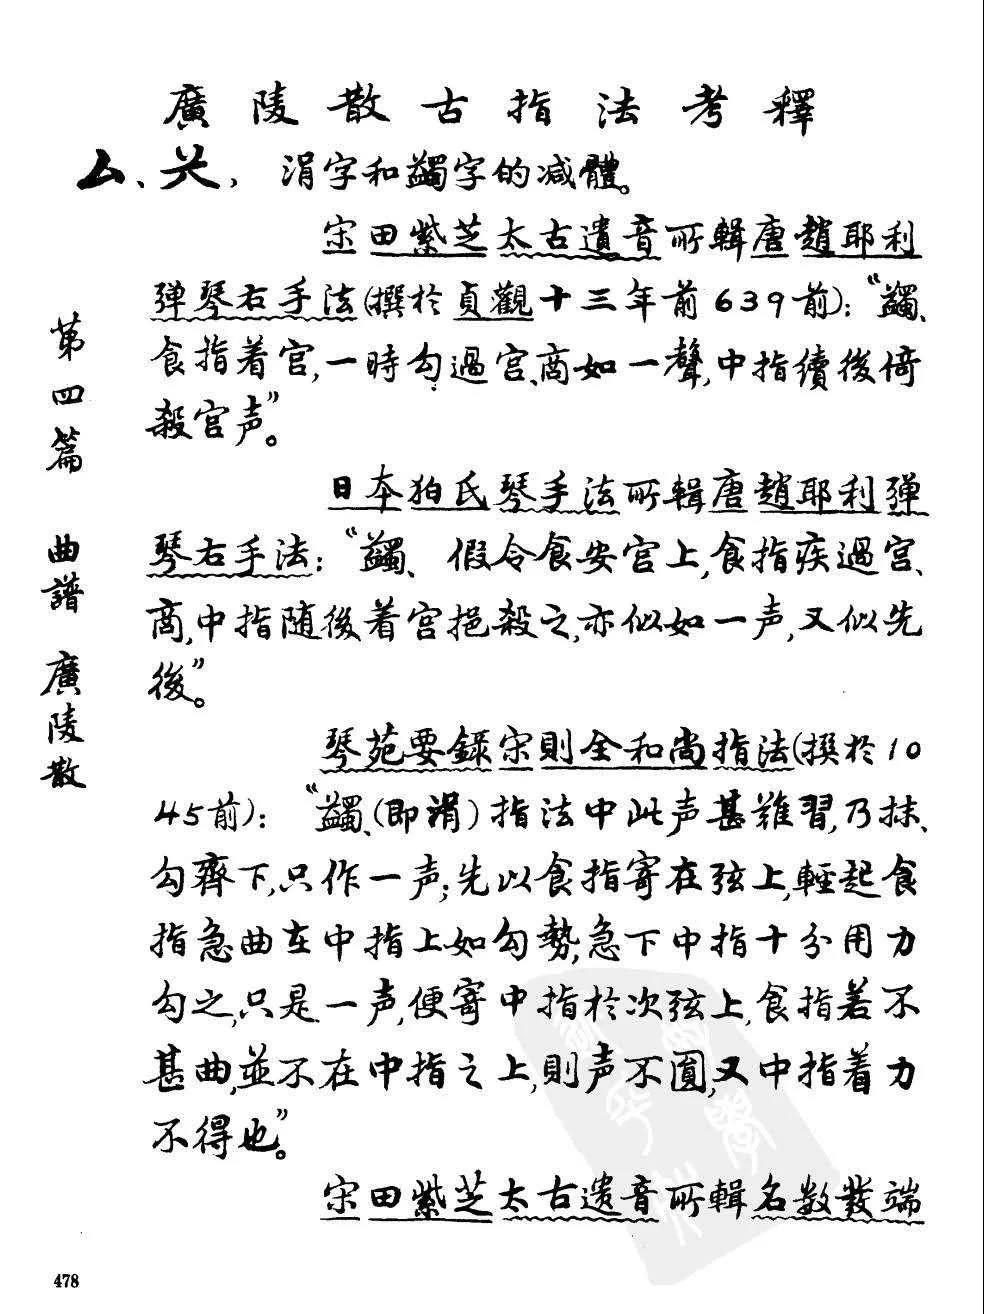 廣陵散古指法考釋
厶、𭕄,涓字和蠲字的减體。
宋田紫芝太古遺音所輯唐趙耶利
弹琴右手法(撰於貞觀十三年前639前):“蠲、
食指着宫,一時勾過宫、商如一聲,中指續後倚
殺宫声”。
日本狛氏琴手法所輯唐趙耶利弹
琴右手法:“蠲、假令食安宫上,食指疾過宫、
商,中指随後着宫挹殺之,亦似如一声,又似先
後”。
琴苑要録宋則全和尚指法(撰於10
45前):“蠲、(即涓)指法中此声甚難習,乃抹、
勾齊下,只作一声;先以食指寄在弦上,輕起食
指急曲在中指上如勾勢,急下中指十分用力
勾之,只是一声,便寄中指於次弦上,食指若不
甚曲,並不在中指之上,則声不圓,又中指着力
不得也”。
宋田紫芝太古遗音所輯名数發端
第四篇 曲譜 廣陵散
478